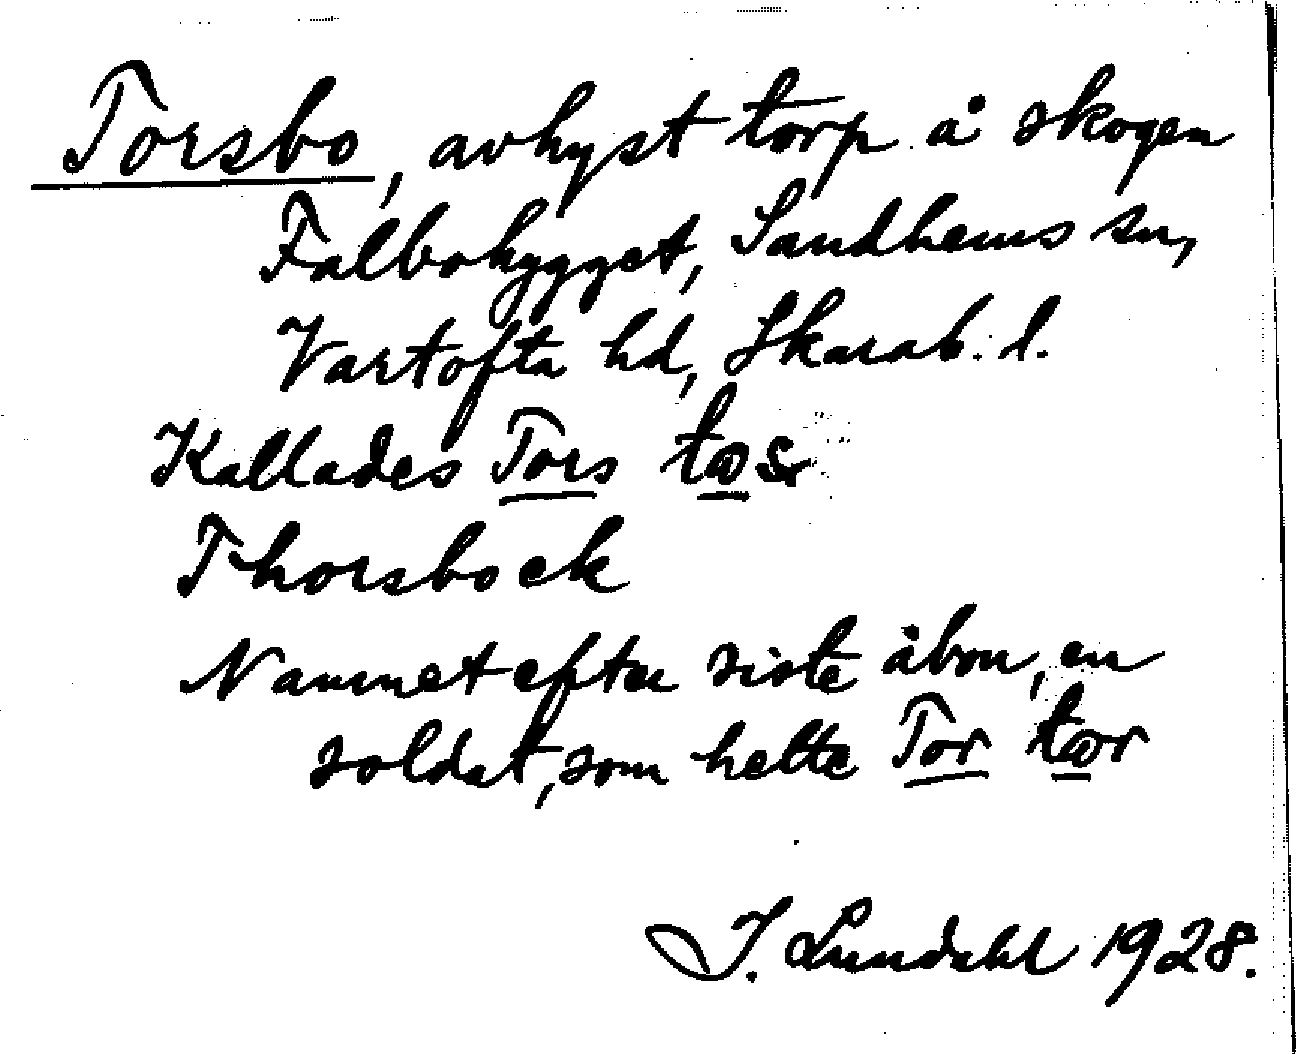 Torsbo, avhyst torp å skogen
Falbohygget, Sandhems sn,
Vartofta hd, Skarab. l.
Kallades Tors
Thorsbock
Namnet efter siste åbon, en
soldat, som hette Tor
J. Lundahl 1928.